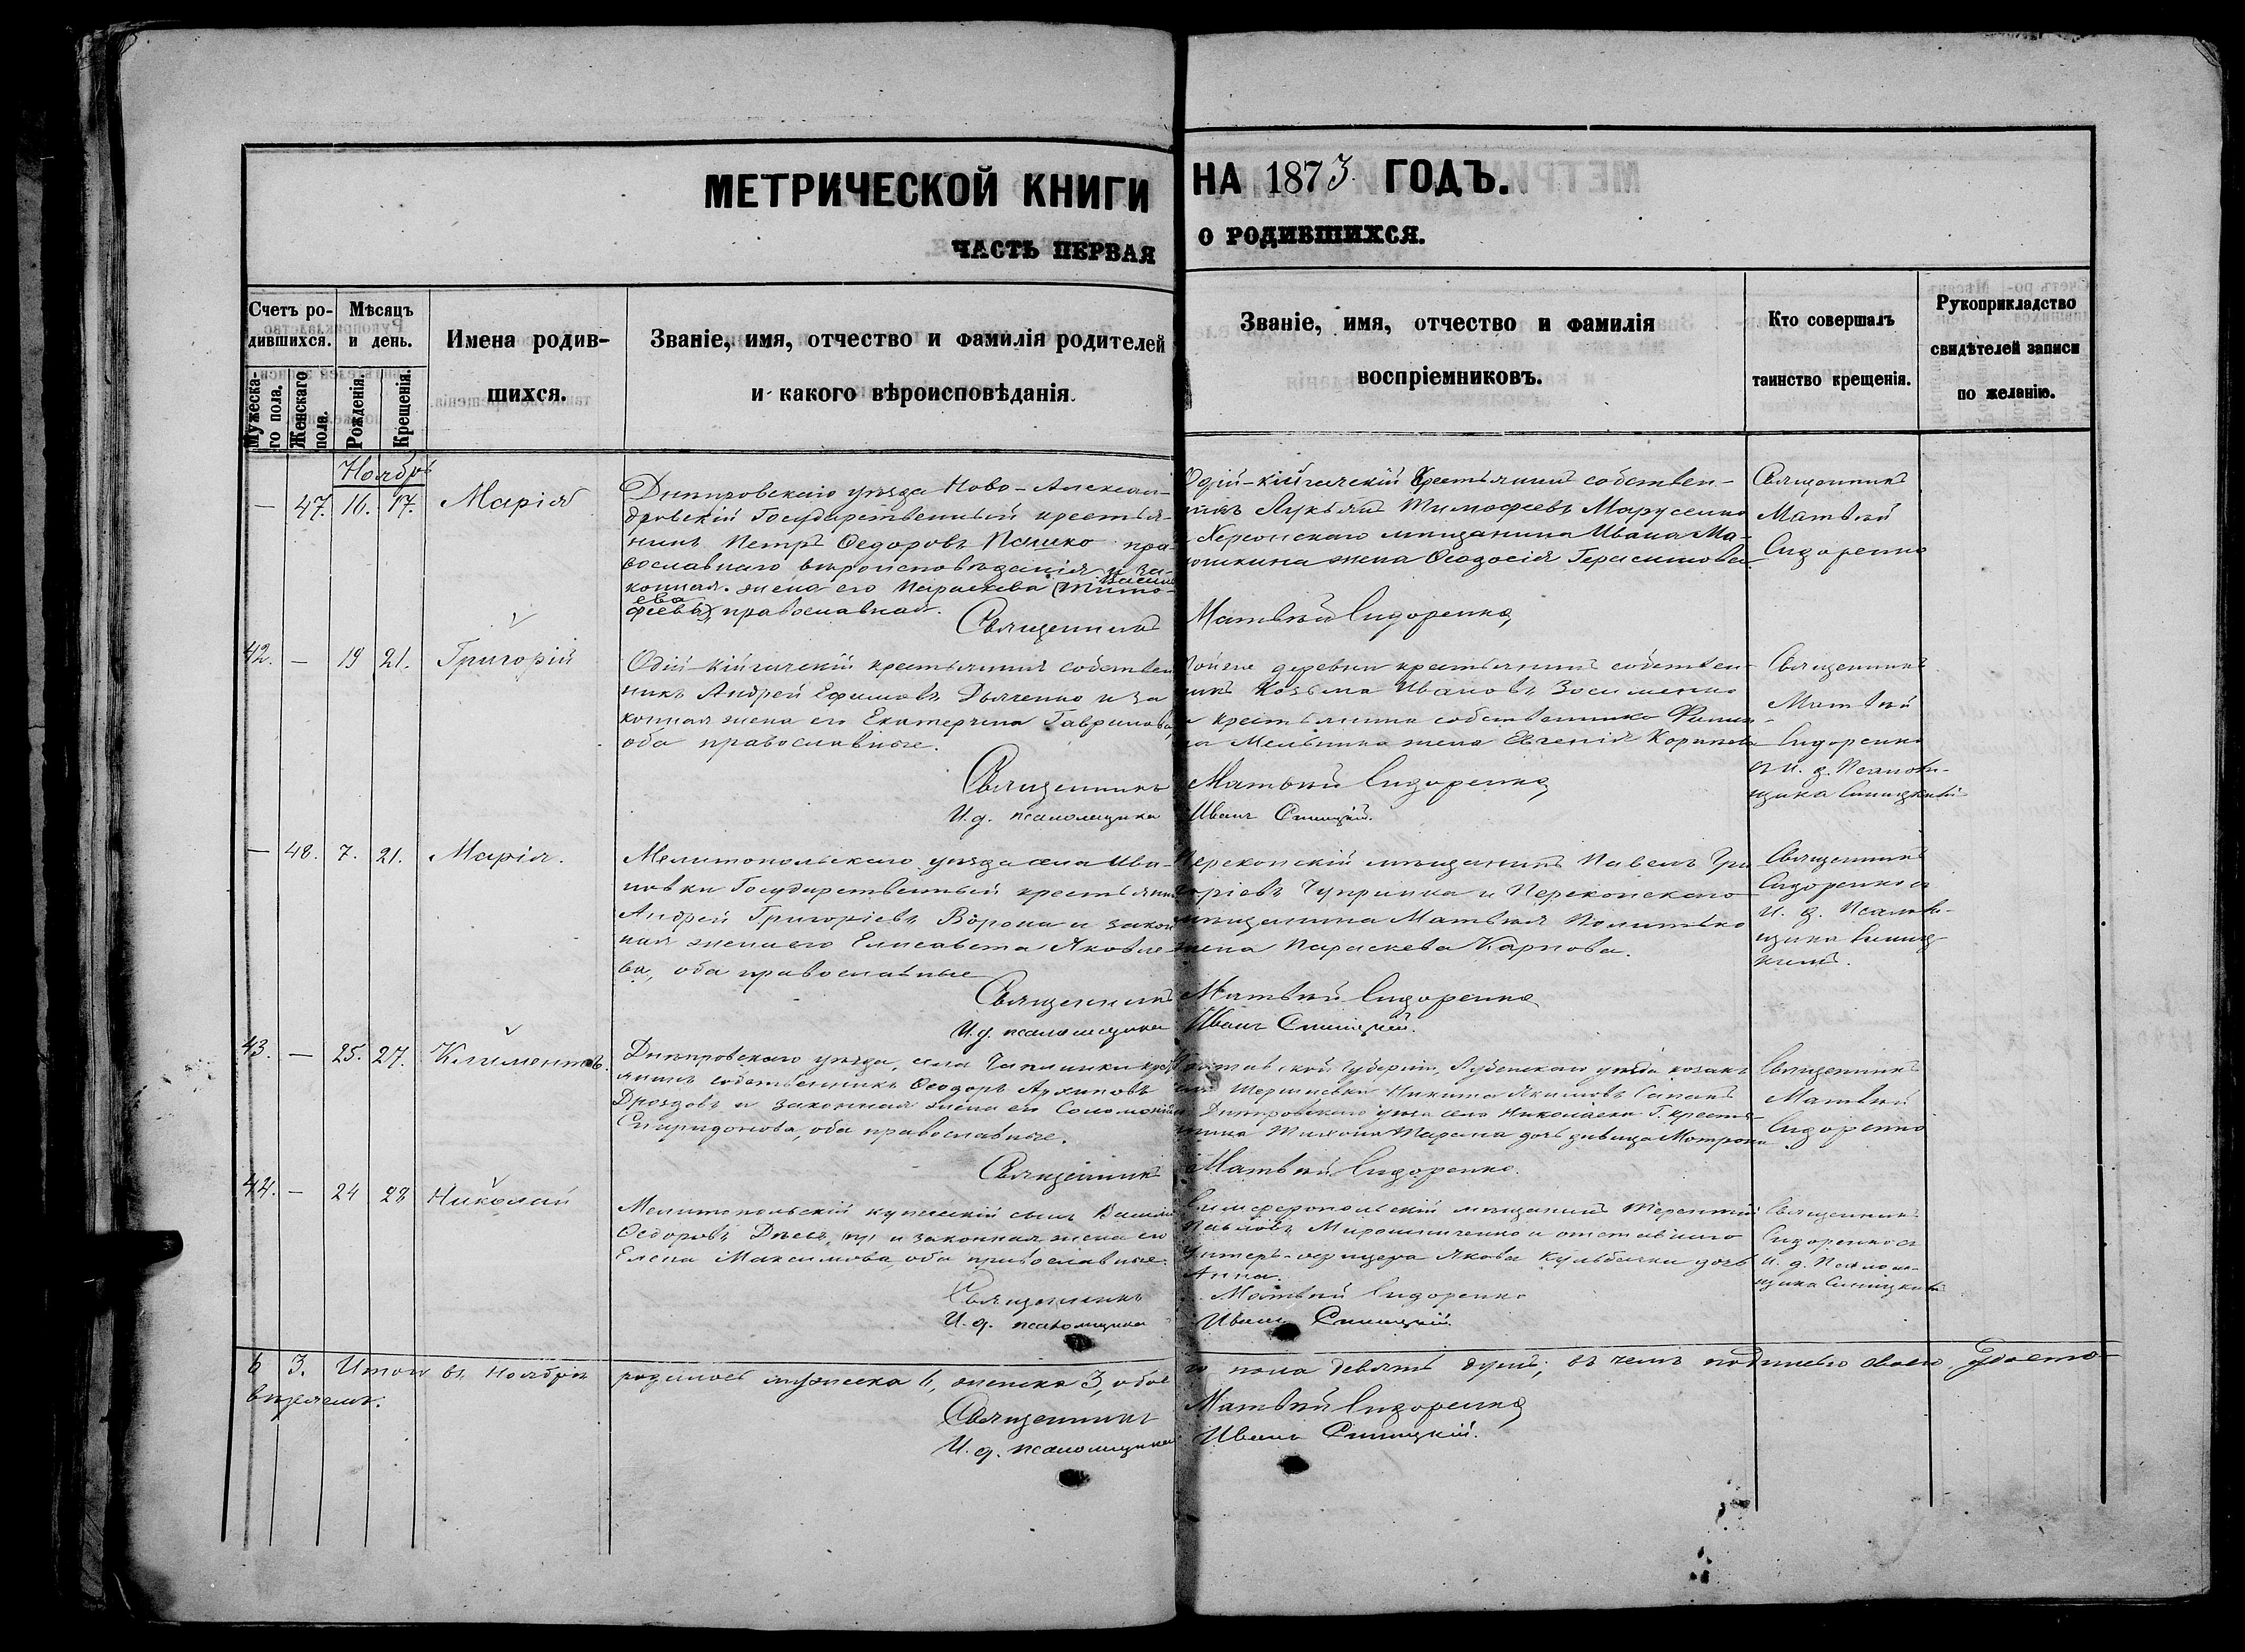 МЕТРИЧЕСКОЙ КНИГИ НА 1873 ГОДЪ.
ЧАСТЬ ПЕРВАЯ О РОДИВШИХСЯ.
Счетъ родившихся.
Мужескаго пола.
Женскаго пола.
Мѣсяцъ и день.
Рожденія.
Крещенія.
Имена родившихся.
Званіе, имя, отчество и фамилія родителей
и какого вѣроисповѣданія.
Званіе, имя, отчество и фамилія
воспріемниковъ.
Кто совершалъ
таинство крещенія.
Рукоприкладство
свидѣтелей записи
по желанію.
Ноябрь
— 47. 16. 17. Марія
Днѣпровскаго уѣзда Ново-Алексан-
дровскій Государственный крестья-
нинъ Петръ Ѳедоровъ Пашко пра-
вославнаго вѣроисповѣданія и за-
конная жена его Параскева (Тимо-
феева), православная.
Одій-кійгичскій Крестьянинъ собствен-
никъ Лукьянъ Тимофеевъ Марусенко
и Херсонскаго мѣщанина Ивана Ма-
жена Ѳеодосія Герасимова
Священникъ
Матвѣй
Сидоренко
Священникъ Матвѣй Сидоренко
42. — 19 21. Григорій
Одій-кійгичскій крестьянинъ собствен
никъ Андрей Ефимовъ Дьяченко и за
конная жена его Екатерина Гаврилова,
оба православные.
Тойже деревни крестьянинъ собствен-
никъ Козьма Ивановъ Зосименко
и крестьянина собственника Филип-
па Мельника жена Евгенія Карпова
Священникъ
Матвѣй
Сидоренко
съ И. д. Псаломщика
Синицкимъ
Священникъ Матвѣй Сидоренко
И. д. псаломщика Иванъ Синицкій.
— 48. 7. 21. Марія.
Мелитопольскаго уѣзда села Ива-
новки Государственный крестьянинъ
Андрей Григоріевъ Ворона и закон
ная жена его Елисавета Яковле-
ва, оба православные
Перекопскій мѣщанинъ Павелъ Гри
горіевъ Чуприна и Перекопскаго
мѣщанина Матвѣя
жена Параскева Карпова.
Священникъ
Сидоренко съ
И. д. Псаломщика
Синицкимъ.
Священникъ Матвѣй Сидоренко
И. д. псаломщика Иванъ Синицкій.
43. — 25. 27. Климентъ.
Днѣпровскаго уѣзда, села Чаплинки крес
янинъ собственникъ Ѳеодоръ Архиповъ
Дроздовъ и законная жена его Соломонія
Спиридонова, оба православные.
Полтавской Губерніи, Лубенскаго уѣзда козакъ
Никита Якимовъ
и Днѣпровскаго уѣзда села Николаевки Г. крестья-
нина Тихона Тарана дочь дѣвица Мотрона
Священникъ
Матвѣй
Сидоренко
Священникъ Матвѣй Сидоренко.
44. — 24 28 Николай
Мелитопольскій купеческій сынъ Василій
Ѳедоровъ и законная жена его
Елена Максимова, оба православные.
Симферопольскій мѣщанинъ Терентій
Павловъ Мирошниченко и отставнаго
Унтеръ-офицера Якова Кульбачки дочь
Анна.
Священникъ
Сидоренко съ
И. д. Псаломщика
Синицкимъ
Священникъ Матвѣй Сидоренко
И. д. псаломщика Иванъ Синицкій.
6 3. Итого въ Ноябрѣ родилось мужеска 6, женска 3, обое
го пола девять душъ; въ чемъ подписью своею удосто-
вѣряемъ.
Священникъ Матвѣй Сидоренко
И. д. псаломщика Иванъ Синицкій.